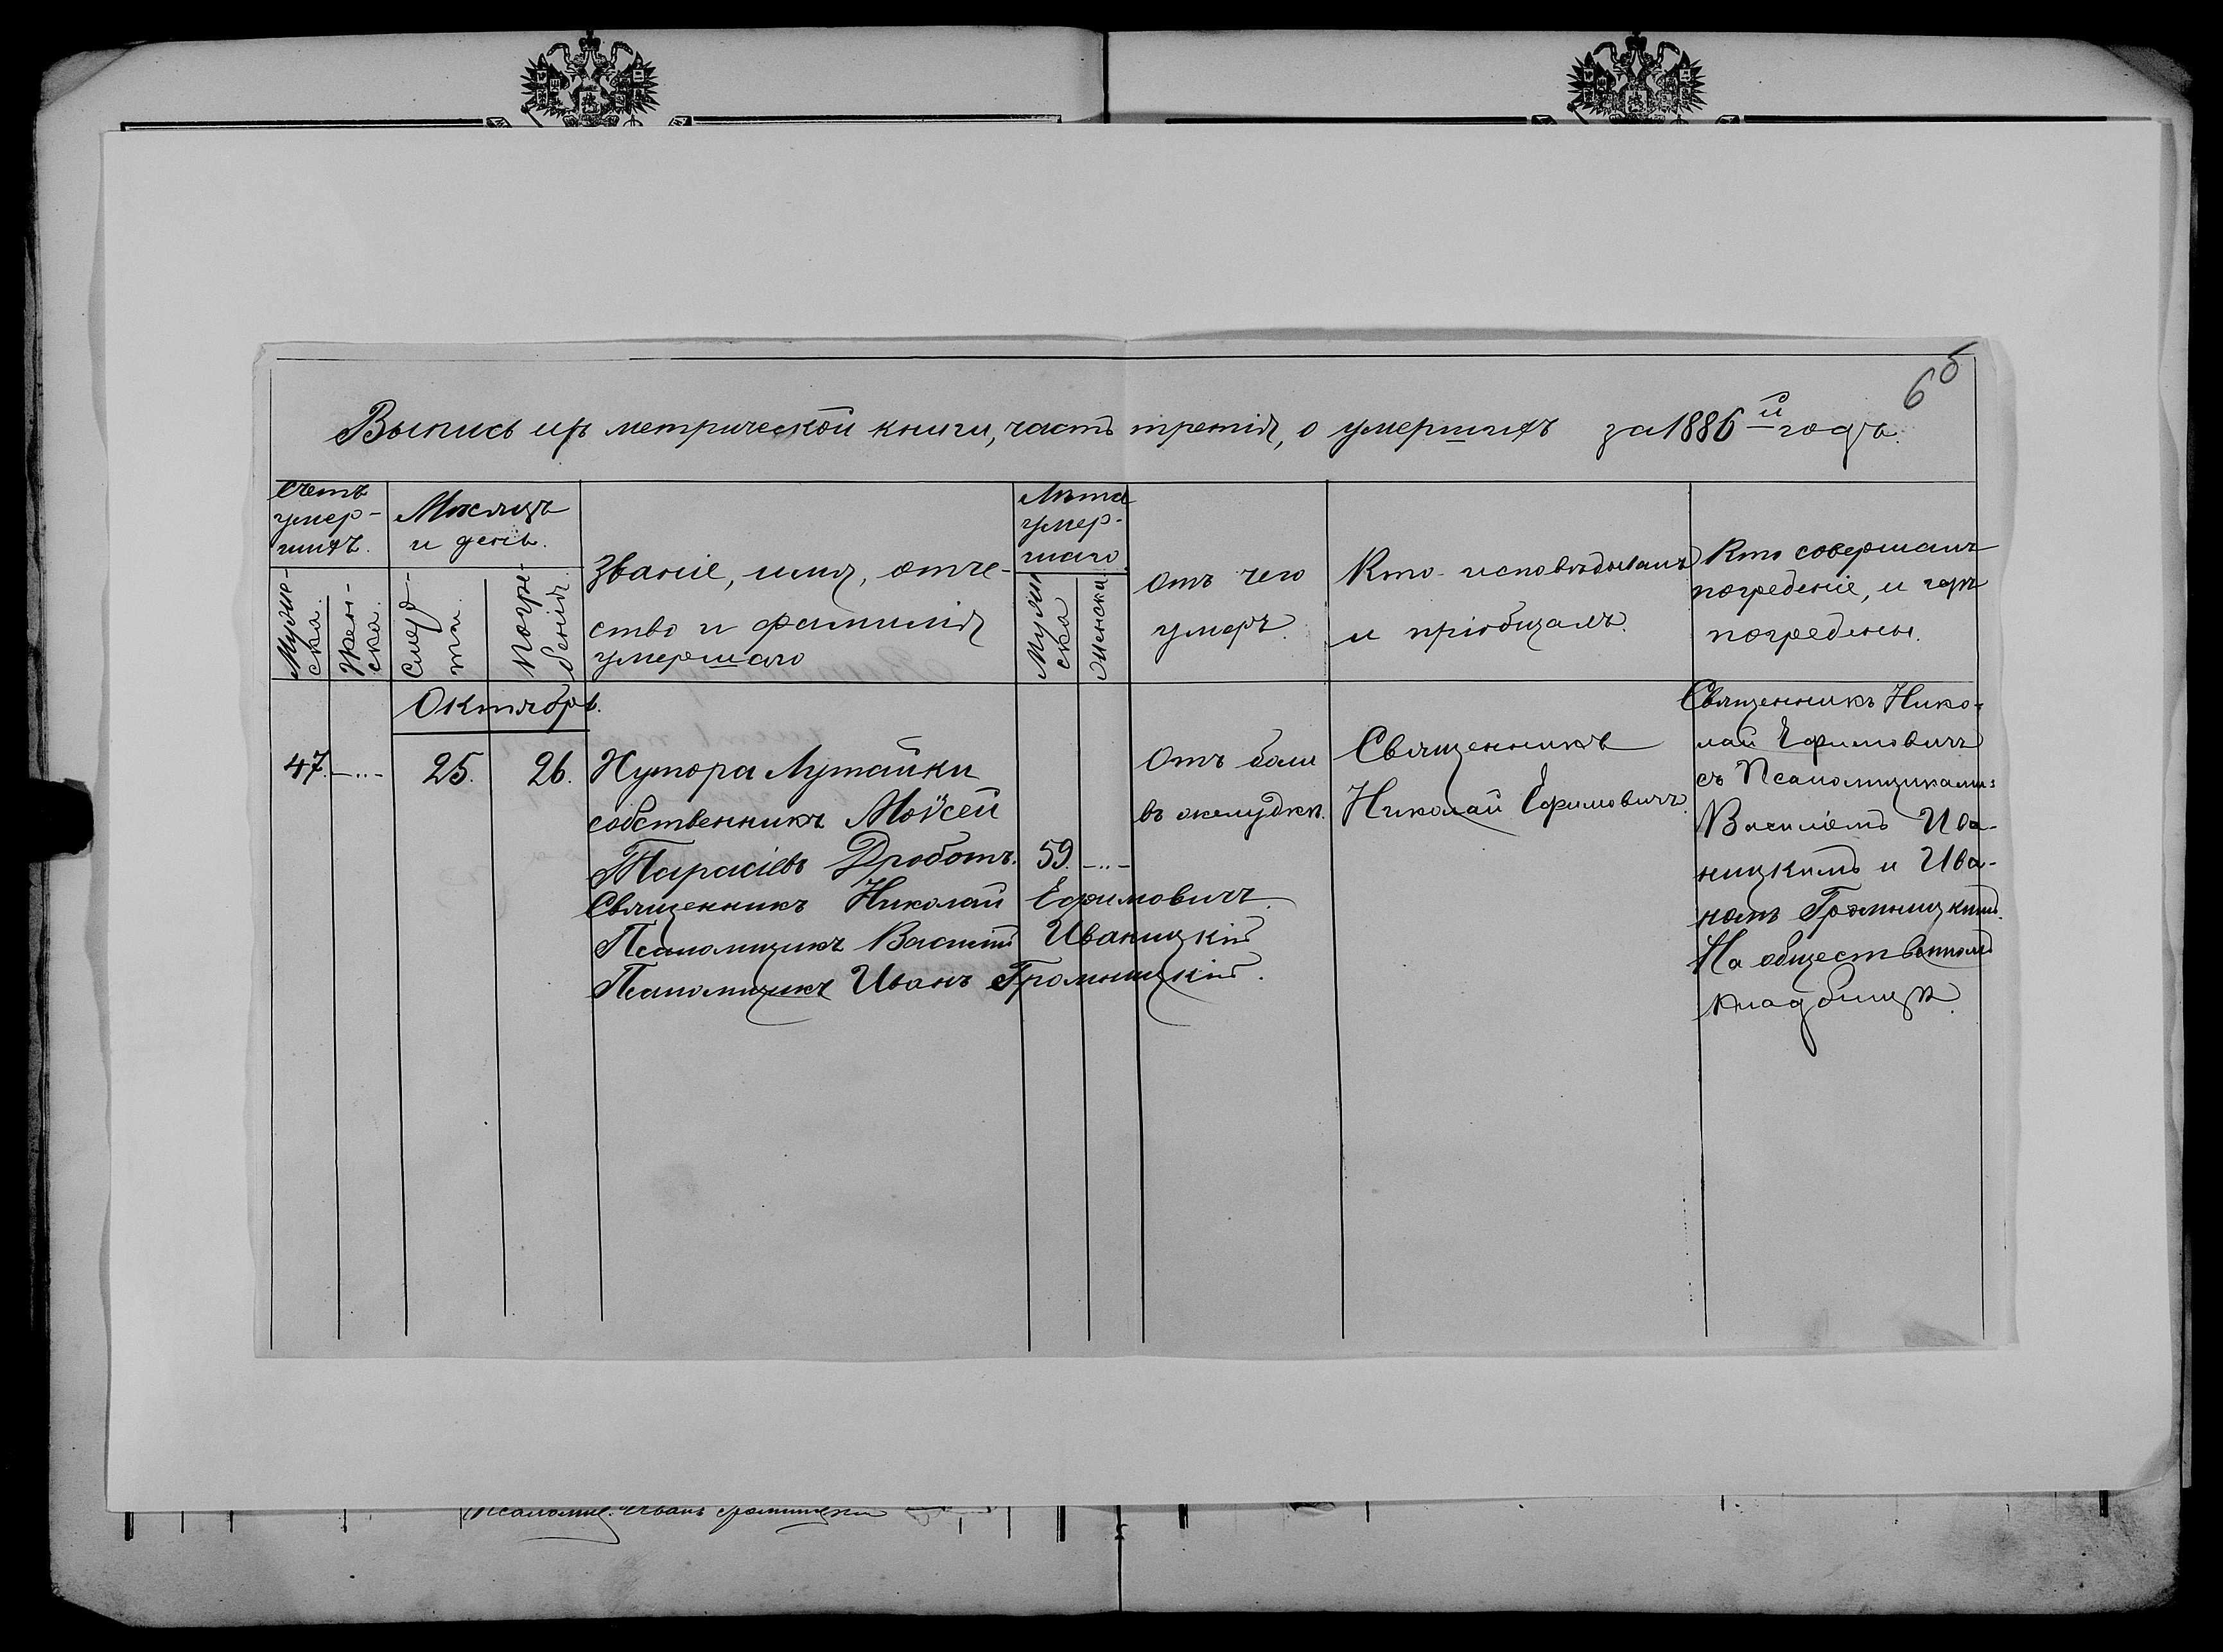 6б
Выпись изъ метрической книги, часть третія, о умершихъ за 1886й годъ.
Счетъ
умер-
шихъ.
Муже-
ска.
Жен-
ска.
Мѣсяцъ
и день.
Смер-
ти.
Погре-
бенія.
Званіе, имя, отче-
ство и фамилія
умершаго
Лѣта
умер-
шаго
Муже
ска
Женска
Отъ чего
умеръ.
Кто исповѣдывалъ
и пріобщалъ.
Кто совершалъ
погребеніе, и гдѣ
погребены.
Октябрь.
47.
25.
26.
Хутора Лутайки
собственникъ Моѵсей
Тарасіевъ Дроботъ.
59.
Священникъ Николай Ефимовичъ.
Псаломщикъ Василій Иваницкій
Псаломщикъ Иванъ Громницкій.
Отъ боли
въ желудкѣ.
Священникъ
Николай Ефимовичъ.
Священникъ Нико-
лай Ефимовичъ
съ Псаломщиками:
Василіемъ Ива-
ницкимъ и Ива-
номъ Громницкимъ.
На общественномъ
кладбищѣ.
Псаломщ. Иванъ Громницкій